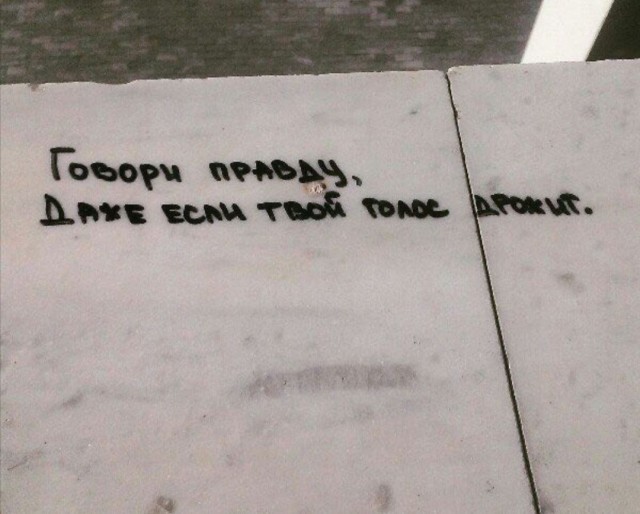 Говори правду,
Даже если твой голос дрожит.